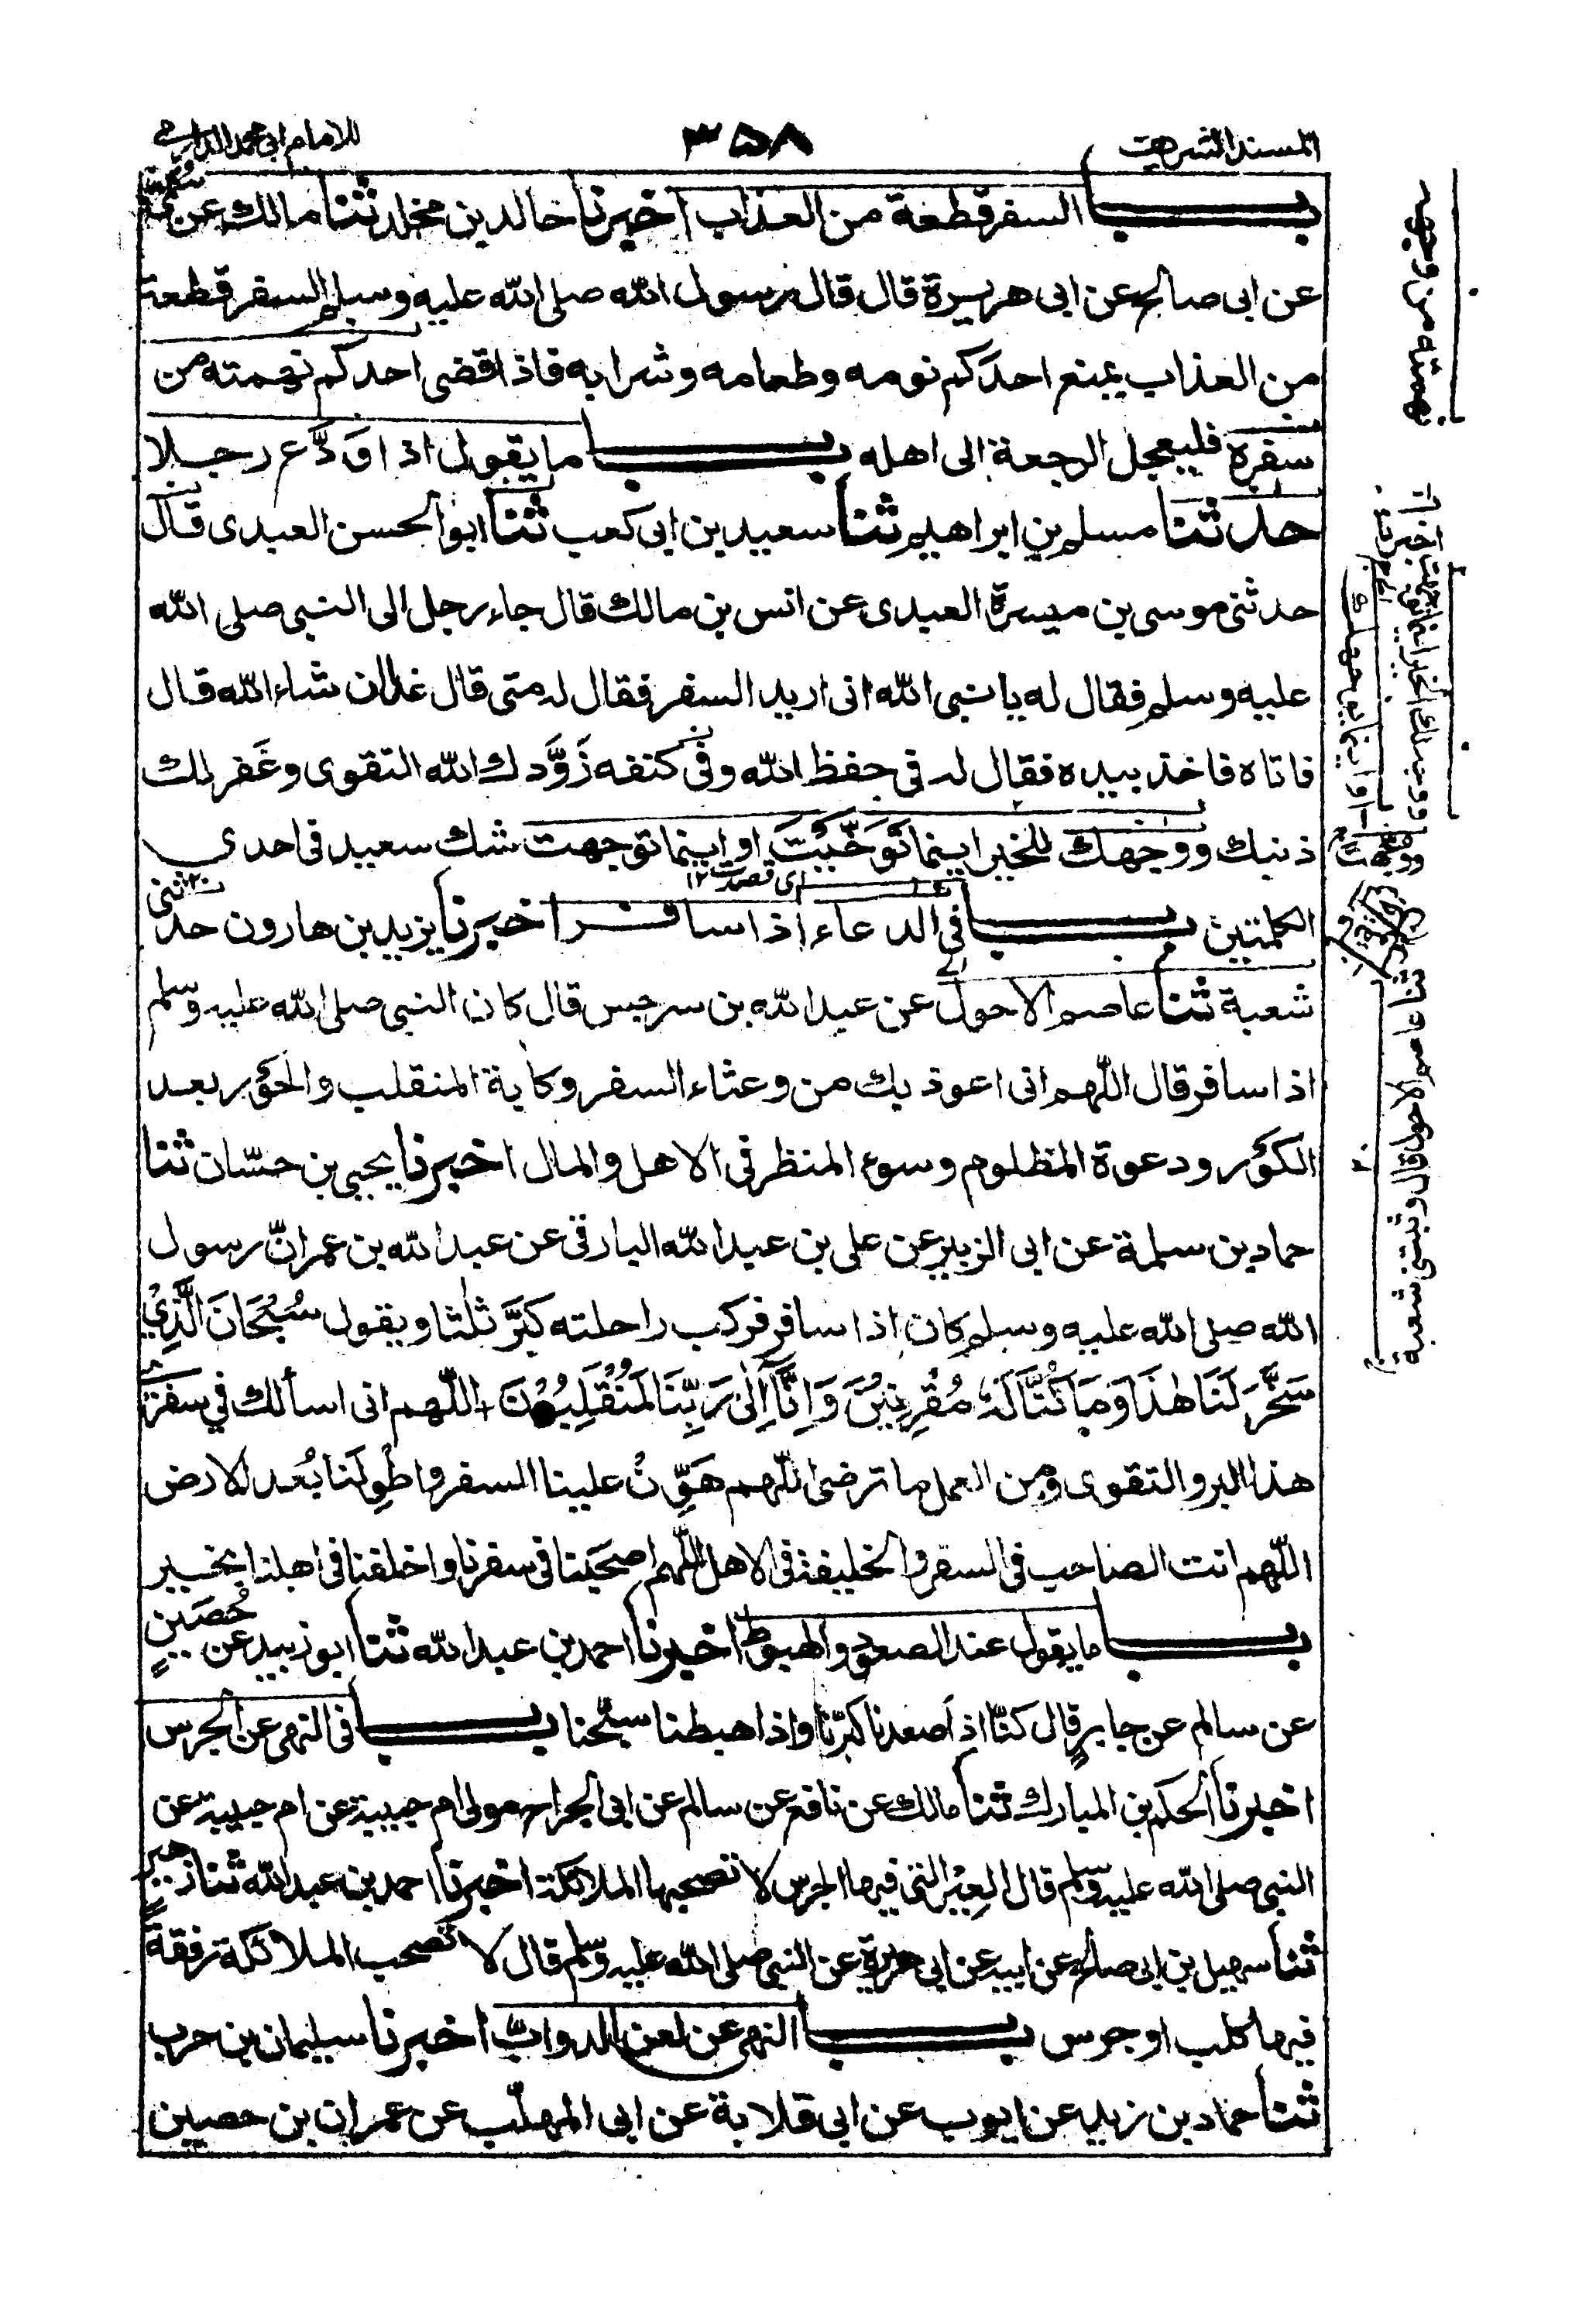 المسند الشريف
٣٥٨
للامام ابی محمد الدارمی
بـــاب السفر قطعة من العذاب اخبرنا خالد بن مخلد ثنا مالك عن سُمَيّ
عن ابی صالح عن ابی هريرة قال قال رسول الله صلی الله عليه وسلم السفر قطعة
من العذاب يمنع احدكم نومه وطعامه وشرابه فاذا قضی احدكم نهمته من
سفره فليعجل الرجعة الی اهله بـــاب ما يقول اذا وَدَّع رجلا
حدثنا مسلم بن ابراهيم ثنا سعيد بن ابی كعب ثنا ابو الحسن العبدی قال
حدثنی موسی بن ميسرة العبدی عن انس بن مالك قال جاء رجل الی النبی صلی الله
عليه وسلم فقال له يا نبی الله انی اريد السفر فقال له متی قال غدا ان شاء الله قال
فاتاه فاخذ بيده فقال له فی حفظ الله وفی كنفه زَوَّدك الله التقوی وغَفر لك
ذنبك ووجهك للخير اينما تَوَخَّيتَ او اينما توجهت شك سعيد فی احدی
ای قصدت ١٢
الكلمتين بـــاب فی الدعاء اذا سافر اخبرنا يزيد بن هارون حدثنی
شعبة ثنا عاصم الاحول عن عبد الله بن سرجس قال كان النبی صلی الله عليه وسلم
اذا سافر قال اللّٰهم انی اعوذ بك من وعثاء السفر وكابة المنقلب والحَوْر بعد
الكَوْر ودعوة المظلوم وسوء المنظر فی الاهل والمال اخبرنا يحيی بن حسّان ثنا
حماد بن سلمة عن ابی الزبير عن علی بن عبد الله البارقی عن عبد الله بن عمر انّ رسول
الله صلی الله عليه وسلم كان اذا سافر فركب راحلته كبَّر ثلٰثا ويقول سُبْحَانَ الَّذِیْ
سَخَّرَ لَنَا هٰذَا وَمَا كُنَّا لَهٗ مُقْرِنِيْنَ وَاِنَّا اِلٰی رَبِّنَا لَمُنْقَلِبُوْنَ اللّٰهم انی اسألك فی سفری
هذا البر والتقوی ومن العمل ما ترضی اللّٰهم هَوِّنْ علينا السفر واطْوِ لَنا بُعْد الارض
اللّٰهم انت الصاحب فی السفر والخليفة فی الاهل اللّٰهم اصحَبنا فی سفرنا واخلفنا فی اهلنا بخير
بـــاب ما يقول عند الصعود والهبوط اخبرنا احمد بن عبد الله ثنا ابو زبيد عن حُصَينٍ
عن سالم عن جابرٍ قال كنّا اذا صعدنا كبّرنا واذا هبطنا سبّحنا بـــاب فی النهی عن الجرس
اخبرنا الحكم بن المبارك ثنا مالك عن نافع عن سالم عن ابی الجراح مولی ام حبيبة عن ام حبيبة عن
النبی صلی الله عليه وسلم قال العِيْر التی فيها الجرس لا تصحبها الملائكة اخبرنا احمد بن عبد الله ثنا زهير
ثنا سهيل بن ابی صالح عن ابيه عن ابی هريرة عن النبی صلی الله عليه وسلم قال لا تصحب الملائكة رفقة
فيها كلب او جرس بـــاب النهی عن لعن الدوابّ اخبرنا سليمان بن حرب
ثنا حماد بن زيد عن ايوب عن ابی قلابة عن ابی المهلّب عن عمران بن حصين
نهمته من وجهه
عاصم الاحول قال وثبتنی شعبة